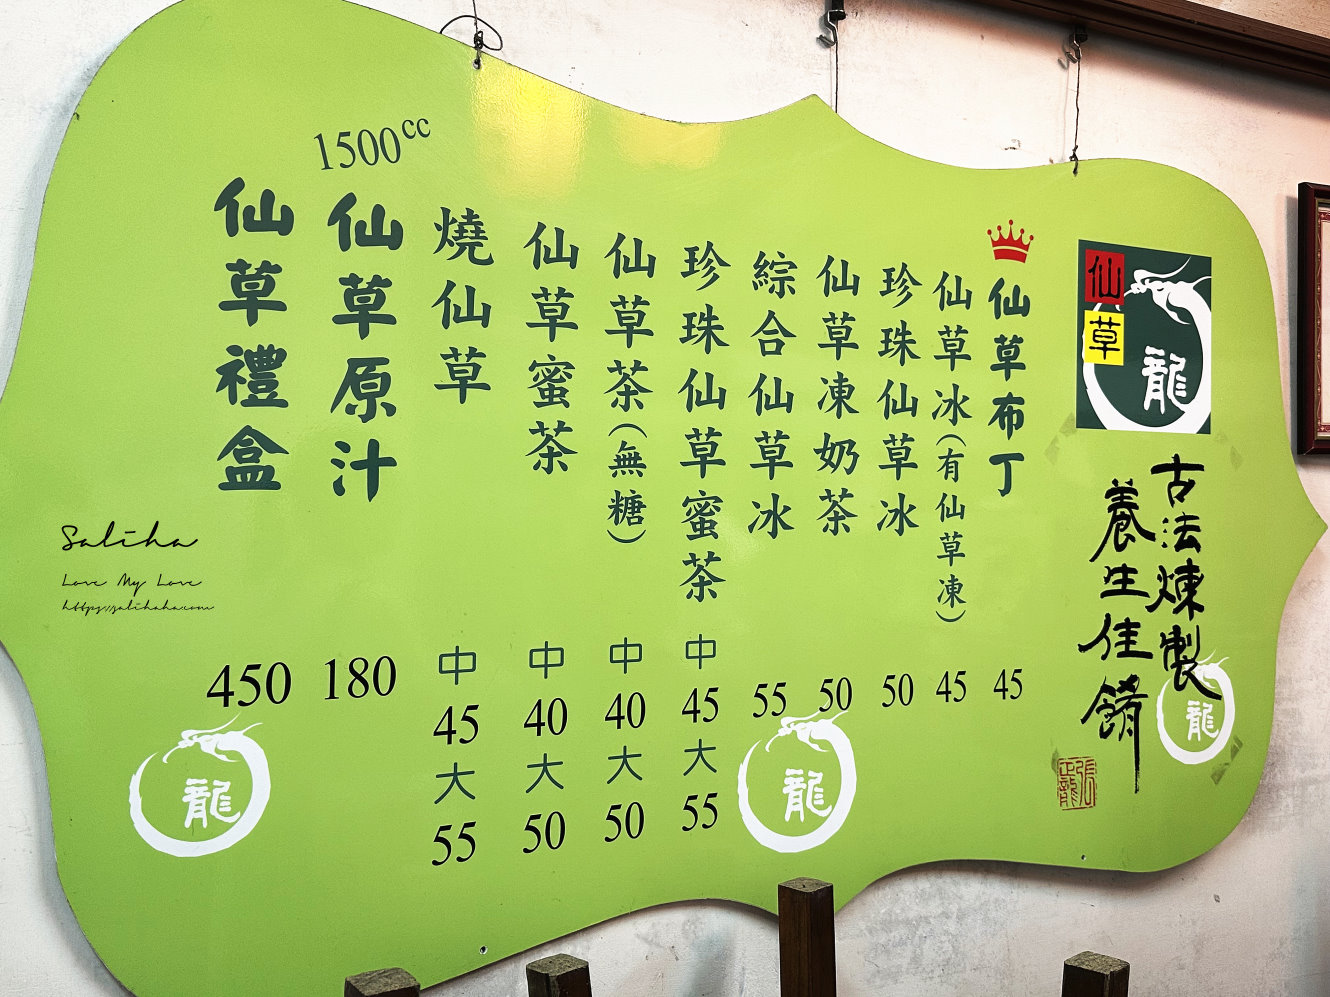 仙草
龍
古法煉製
養生佳餚
龍
張龍
仙草布丁
45
仙草冰(有仙草凍)
45
珍珠仙草冰
50
仙草凍奶茶
50
綜合仙草冰
55
珍珠仙草蜜茶
中
45
大
55
仙草茶(無糖)
中
40
大
50
仙草蜜茶
中
40
大
50
燒仙草
中
45
大
55
1500cc
仙草原汁
180
仙草禮盒
450
龍
龍
Saliha
Love My Love
https://salihaha.com